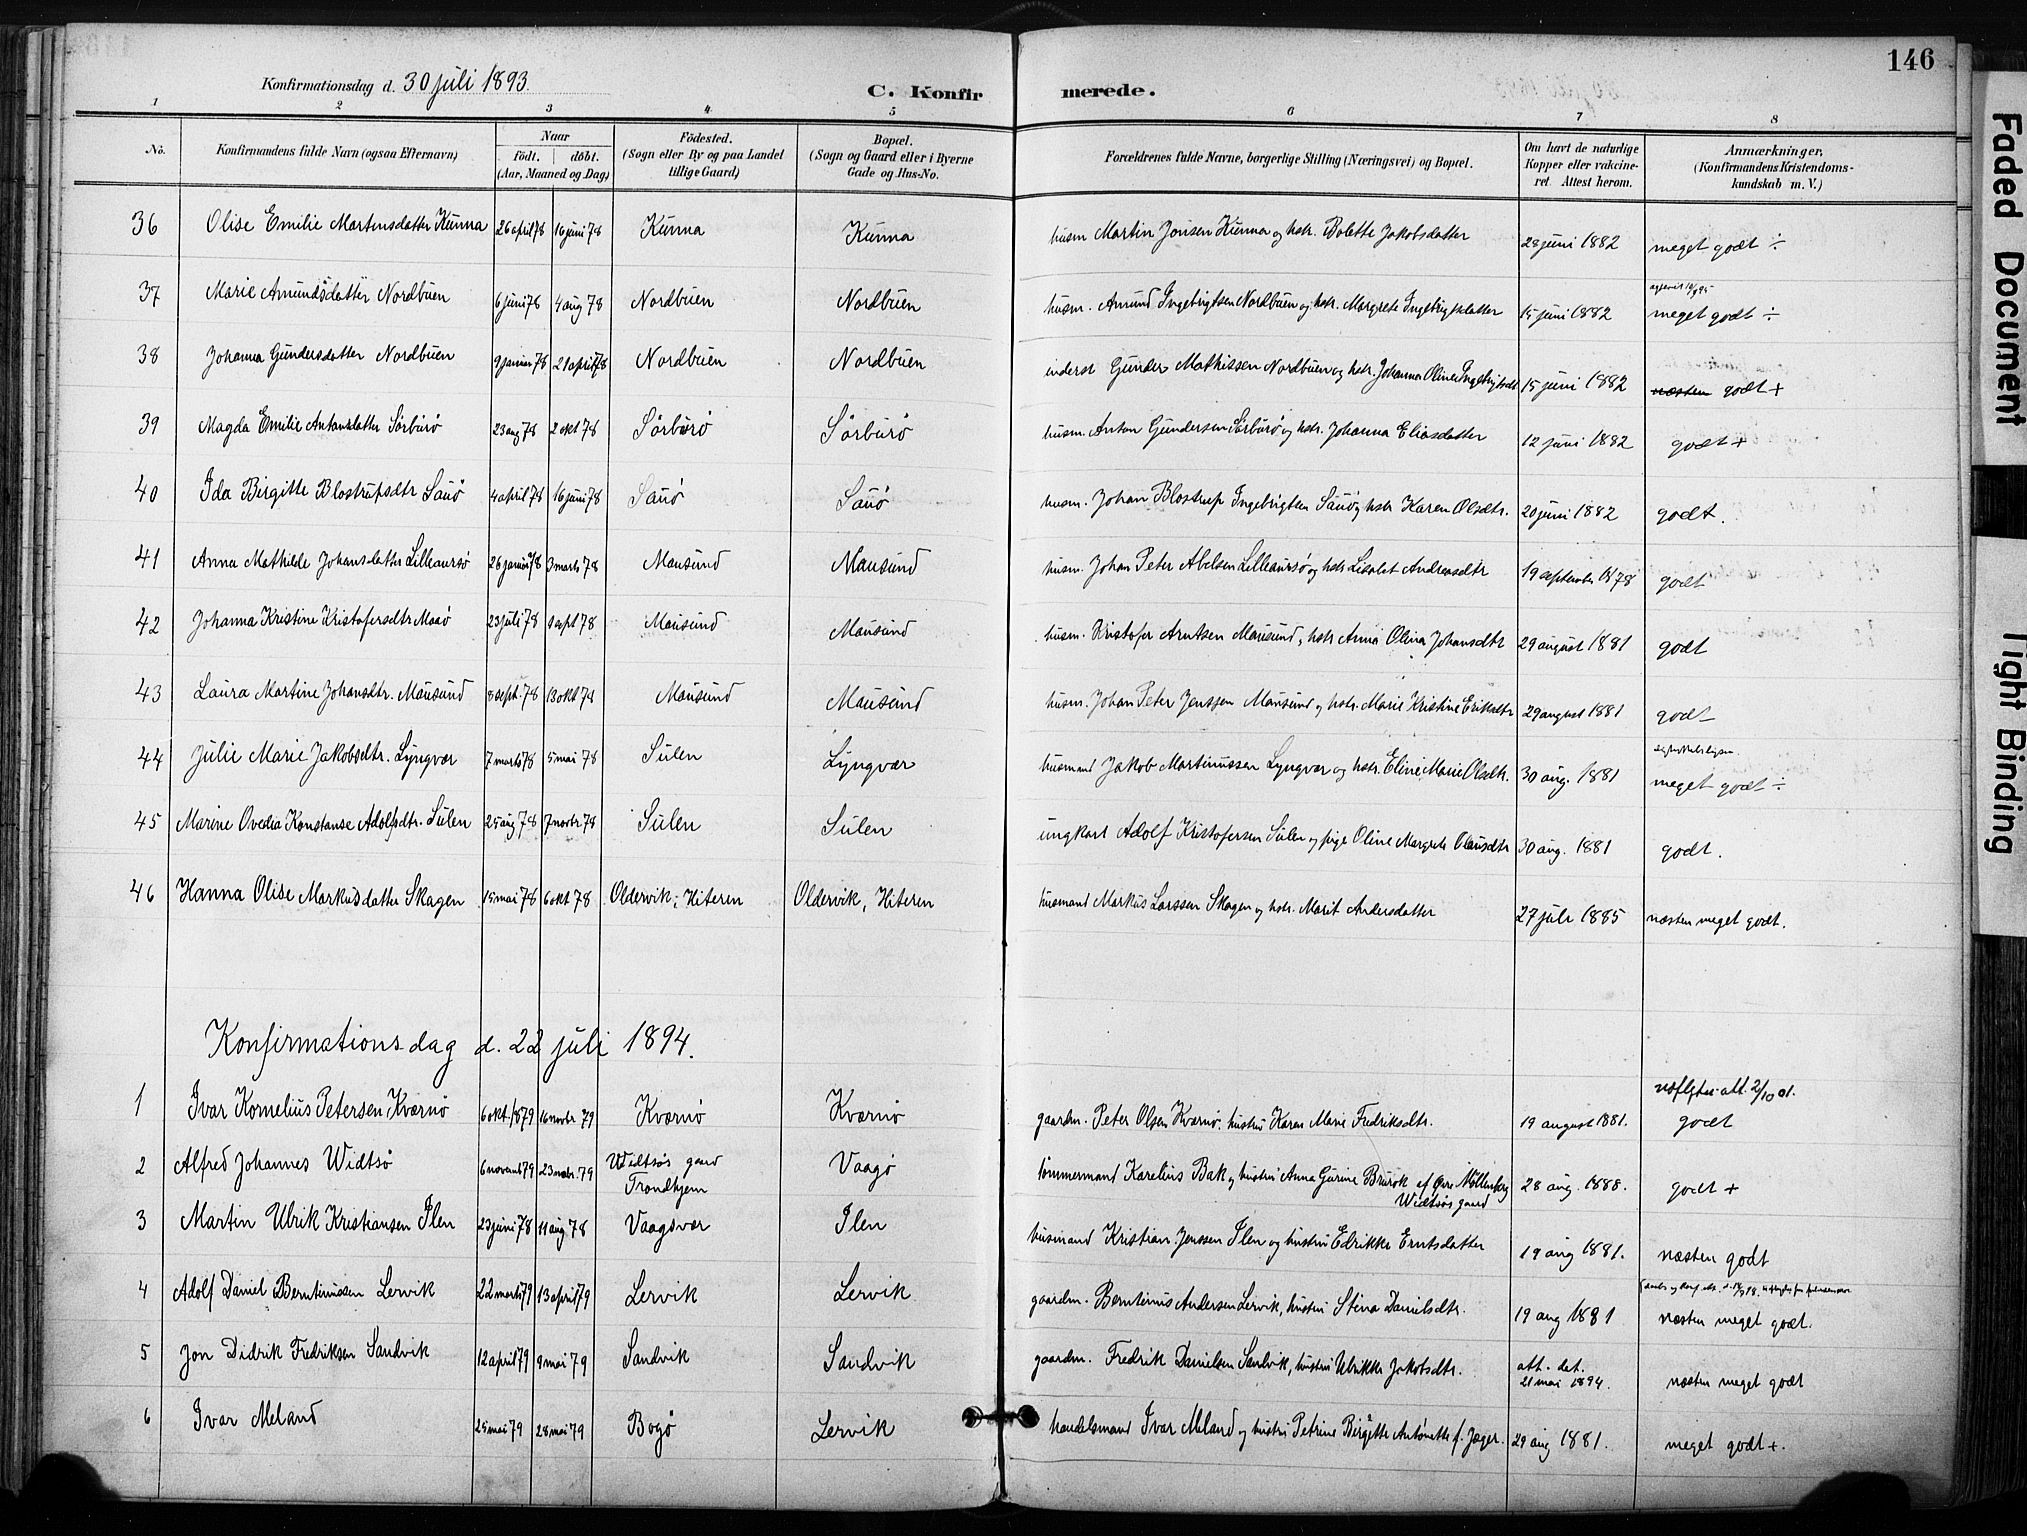 146
Konfirmationsdag d. 30 juli 1893.
C. Konfirmerede.
1 2 3 4 5 6 7 8
No. Konfirmandens fulde Navn (ogsaa Efternavn) Naar født. døbt. (Aar, Maaned og Dag) Fødested. (Sogn eller By og paa Landet tillige Gaard) Bopæl. (Sogn og Gaard eller i Byerne Gade og Hus-No. Forældrenes fulde Navne, borgerlige Stilling (Næringsvei) og Bopæl. Om havt de naturlige Kopper eller vakcineret. Attest herom. Anmærkninger, (Konfirmandens Kristendomskundskab m. V.)
36 Olise Emilie Martensdatter Kunna 26 april 78 16 juni 78 Kunna Kunna husm Martin Jonsen Kunna og hstr. Bolette Jakobsdatter 28 juni 1882 meget godt ÷
37 Marie Amundsdatter Nordbuen 6 juni 78 4 aug 78 Nordbuen Nordbuen husm. Amund Ingebrigtsen Nordbuen og hstr. Margrete Ingebrigtsdatter 15 juni 1882 meget godt ÷
38 Johanna Gundersdatter Nordbuen 9 januar 78 21 april 78 Nordbuen Nordbuen inderst Gunder Mathissen Nordbuen og hstr. Johanna Oline Ingebrigtsdt 15 juni 1882 næsten godt +
39 Magda Emilie Antonsdatter Sørburø 23 aug 78 2 okt 78 Sørburø Sørburø husm. Anton Gundersen Sørburø og hstr. Johanna Eliasdatter 12 juni 1882 godt +
40 Ida Birgitte Blostrupsdtr Sauø 4 april 78 16 juni 78 Sauø Sauø husm. Johan Blostrup Ingebrigtsen Sauø og hstr Karen Olsdtr. 20 juni 1882 godt.
41 Anna Mathilde Johansdatter Lilleaursø 26 januar 78 3 marts 78 Mausund Mausund husm. Johan Peter Abelsen Lilleaursø og hstr Lisabet Andreasdtr 19 september 1878 godt
42 Johanna Kristine Kristofersdtr Maaø 23 juli 78 1 sept 78 Mausund Mausund husm. Kristofer Arntsen Mausund, hstr Anna Olina Johansdtr 29 august 1881 godt
43 Laura Martine Johansdtr. Mausund 8 sept. 78 13 okt 78 Mausund Mausund husm. Johan Peter Jenssen Mausund og hstr. Marie Kristine Eriksdtr 29 august 1881 godt
44 Julie Marie Jakobsdtr. Lyngvær 7 marts 78 5 mai 78 Sulen Lyngvær husmand Jakob Martinussen Lyngvær og hstr. Eline Marie Olsdtr. 30 aug. 1881 meget godt ÷
45 Marine Ovedia Konstanse Adolfsdtr. Sulen 25 aug 78 7 novbr. 78 Sulen Sulen ungkarl Adolf Kristofersen Sulen og pige Oline Margrete Olausdtr 30 aug. 1881 godt.
46 Hanna Olise Markusdatter Skagen 15 mai 78 6 okt 78 Oldervik, Hiteren Oldervik, Hiteren husmand Markus Larssen Skagen og hstr. Marit Andersdatter 27 juli 1885 næsten meget godt.
Konfirmationsdag d. 22 juli 1894.
1 Ivar Kornelius Petersen Kværnø 6 okt. 1879 16 novbr 79 Kværnø Kværnø gaardm. Peter Olsen Kværnø. hustru Karen Marie Fredriksdtr. 19 august 1881. att. 2/10 01. godt
2 Alfred Johannes Widtsø 6 novemb 79 23 novbr. 79 Widtsøs gaard Trondhjem Vaagø tømmermand Karelius Bak og hustru Anna Gurine Brurok af Øvre Møllenberg Widtsøs gaard 28 aug. 1888. godt +
3 Martin Ulrik Kristiansen Ilen 23 juni 78 11 aug. 78 Vaagsvær Ilen husmand Kristian Jenssen Ilen og hustru Edrikke Erntsdatter 19 aug 1881. næsten godt
4 Adolf Daniel Berntinussen Lervik 22 marts 79 13 april 79 Lervik Lervik gaardm. Berntinus Andersen Lervik, hustru Stina Danielsdtr. 19 aug 1881 næsten meget godt.
5 Jon Didrik Fredriksen Sandvik 12 april 79 9 mai 79 Sandvik Sandvik gaardm. Fredrik Danielsen Sandvik, hustru Ulrikke Jakobsdtr. att. dat. 21 mai 1894. næsten meget godt
6 Ivar Meland 25 mai 79 28 mai 79 Bogø Lervik handelsmand Ivar Meland og hustru Petrine Birgitte Antonette f. Jæger. 29 aug 1881. meget godt +.
Faded Document
Tight Binding